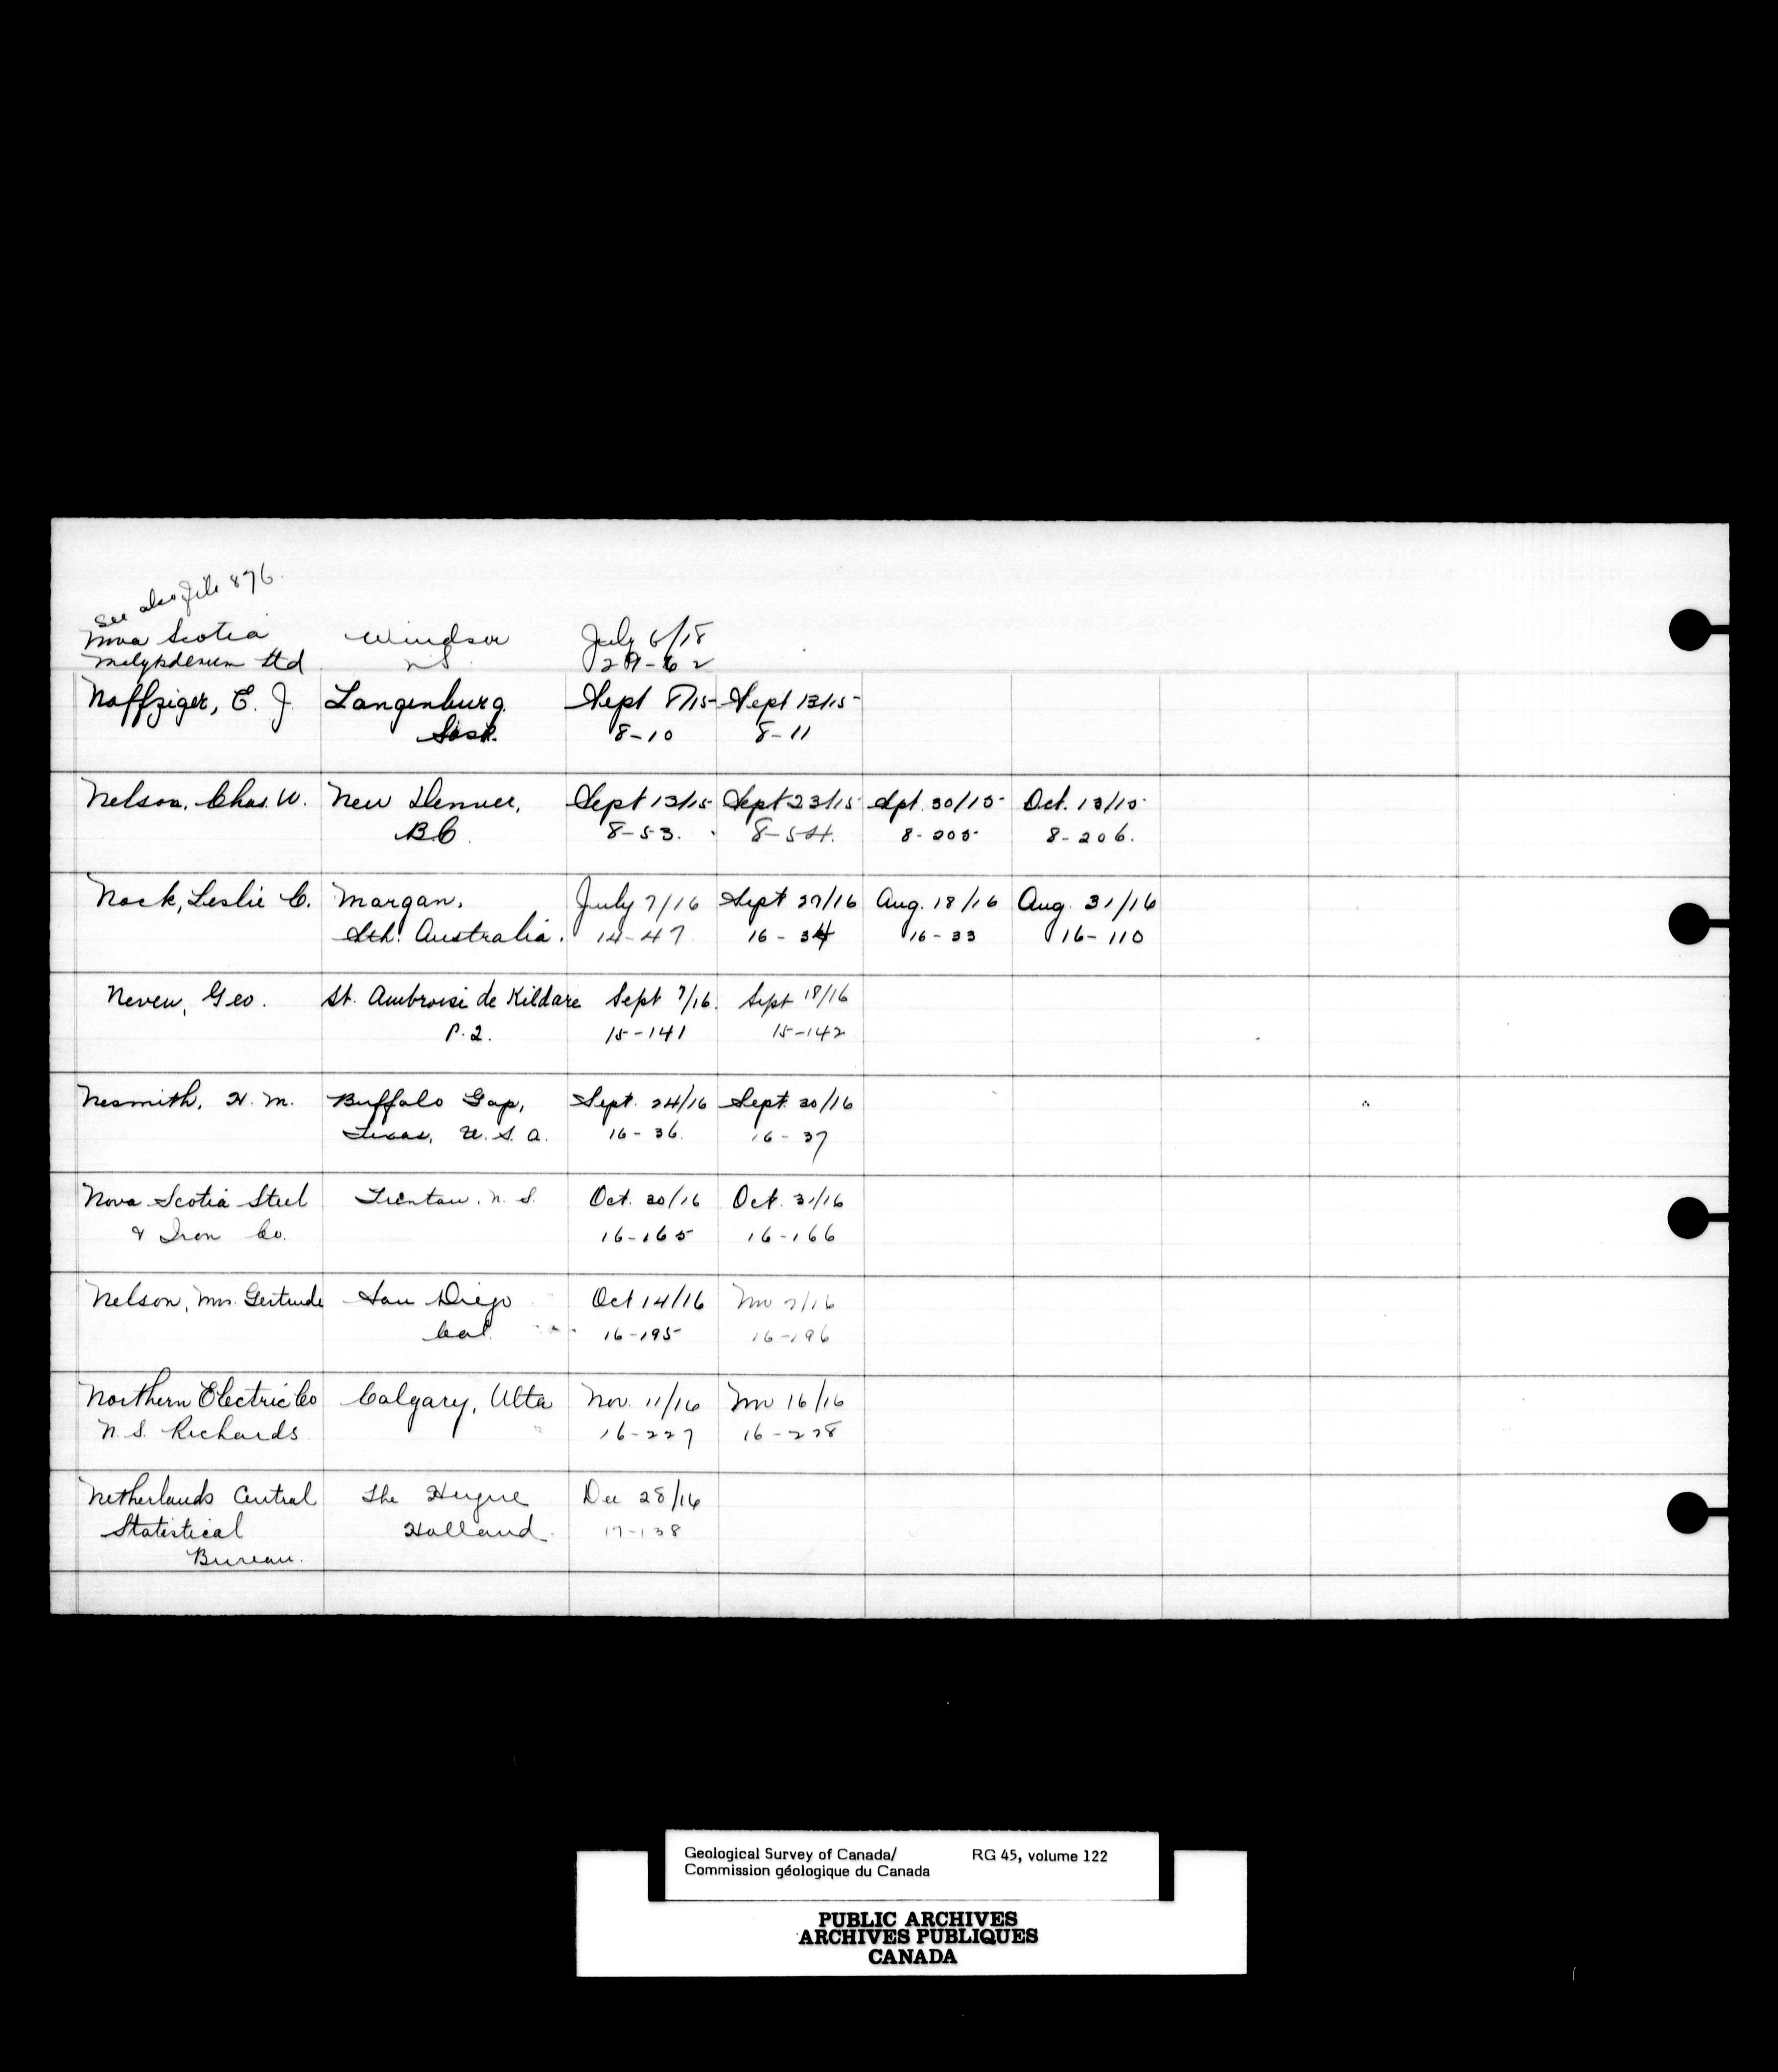 See also file 876.
Nova Scotia Windsor July 6/18
Molybdenum Ltd NS 29-62
Naffziger, E. J. Langenburg. Sept 8/15 Sept 13/15
Sask. 8-10 8-11
Nelson, Chas. W. New Denver, Sept 13/15 Sept 23/15 Spt. 30/15 Oct. 13/15
B.C. 8-53. 8-54. 8-205 8-206.
Nock, Leslie C. Morgan, July 7/16 Sept 27/16 Aug. 18/16 Aug. 31/16
Sth. Australia. 14-47 16-34 16-33 16-110
Neveu, Geo. St. Ambroisi de Kildare Sept 7/16. Sept 18/16
P.2. 15-141 15-142
Nesmith, H. M. Buffalo Gap, Sept. 24/16 Sept. 30/16
Texas, U.S.A. 16-36. 16-37
Nova Scotia Steel Trenton. N.S. Oct. 30/16 Oct. 31/16
& Iron Co. 16-165 16-166
Nelson, Mrs. Gertrude San Diego Oct 14/16 Nov 7/16
Cal. 16-195 16-196
Northern Electric Co Calgary, Alta Nov. 11/16 Nov 16/16
N.S. Richards 16-227 16-228
Netherlands Central The Hague Dec 28/16
Statistical Holland. 17-138
Bureau.
Geological Survey of Canada/ RG 45, volume 122
Commission géologique du Canada
PUBLIC ARCHIVES
ARCHIVES PUBLIQUES
CANADA